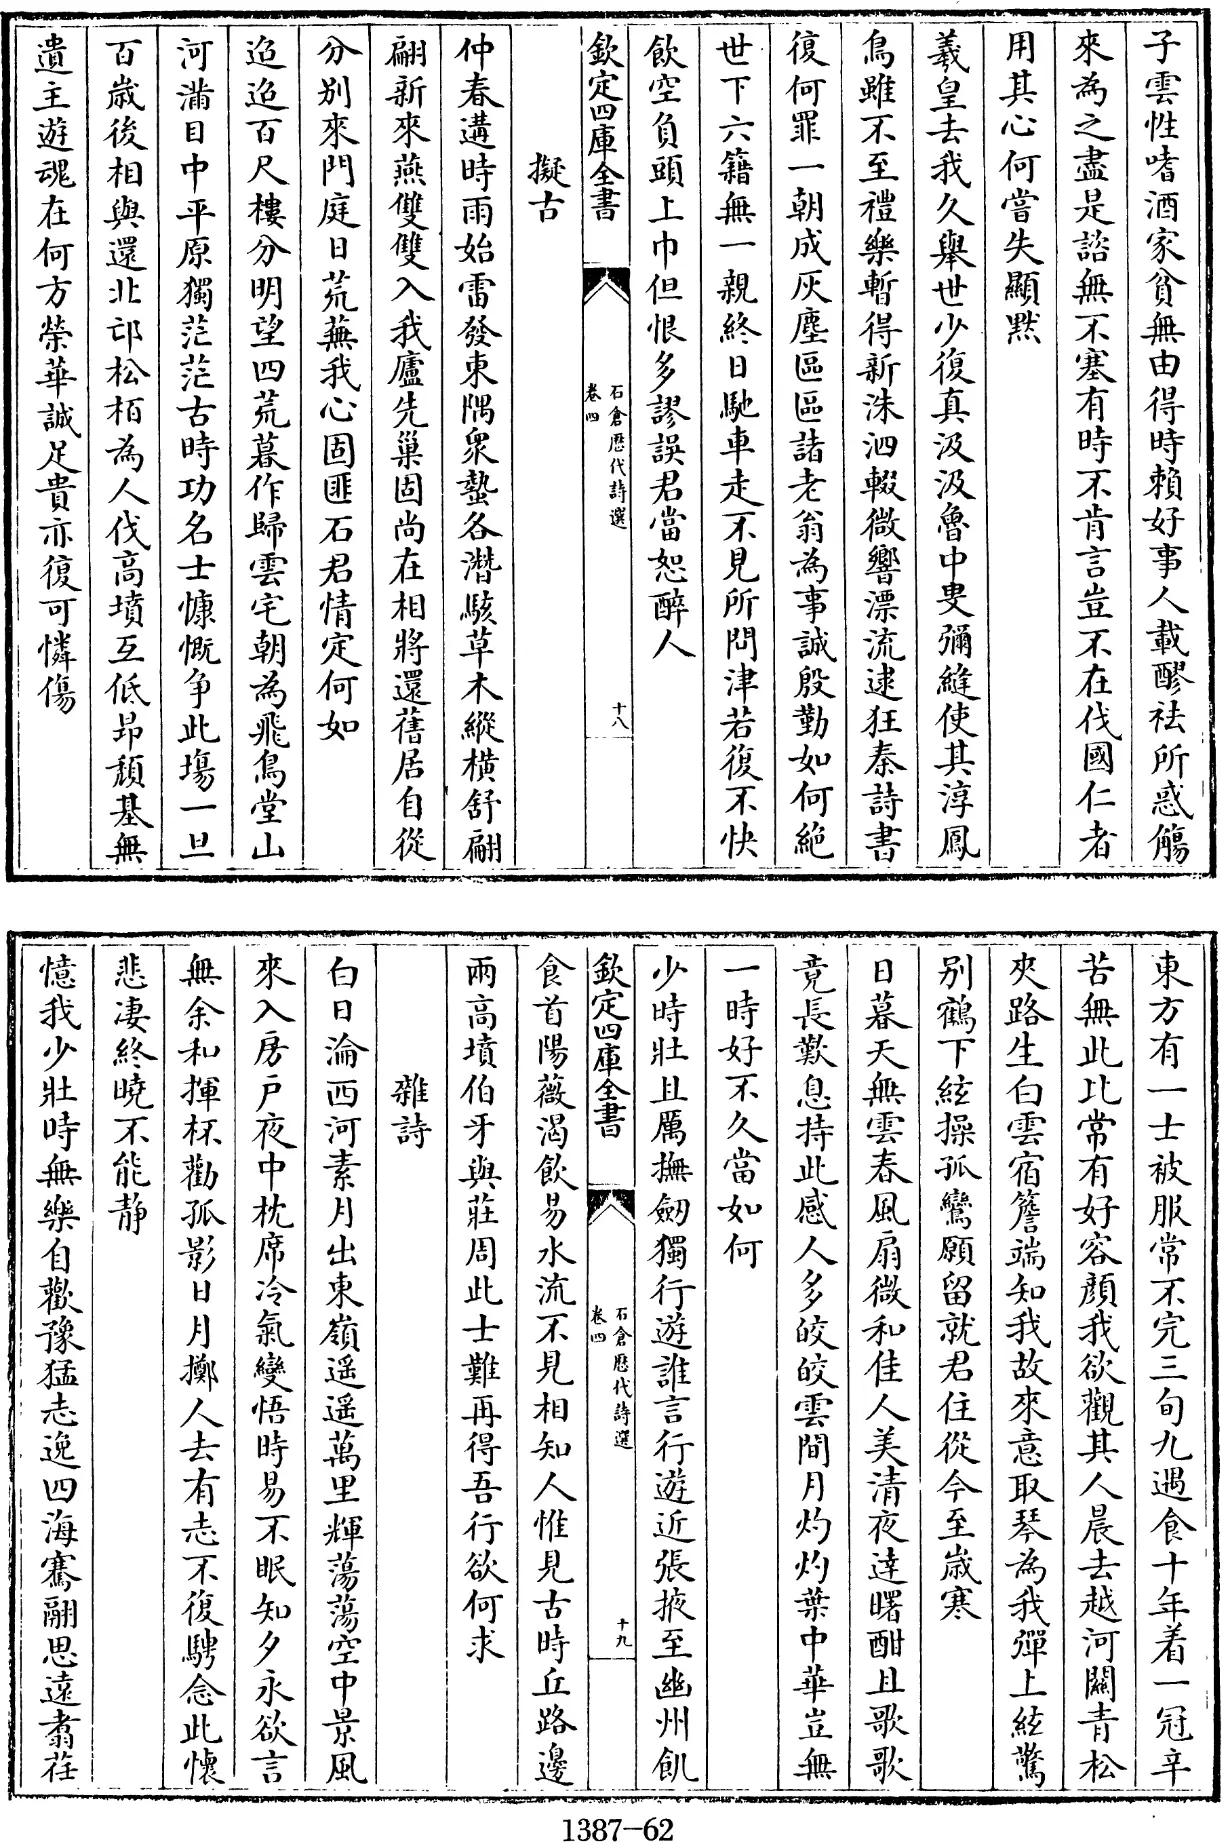 子雲性嗜酒家貧無由得時賴好事人載醪祛所惑觴
來為之盡是諮無不塞有時不肯言豈不在伐國仁者
用其心何嘗失顯黙
羲皇去我久舉世少復真汲汲魯中叟彌縫使其淳鳳
鳥雖不至禮樂暫得新洙泗輟微響漂流逮狂秦詩書
復何罪一朝成灰塵區區諸老翁為事誠殷勤如何絶
世下六籍無一親終日馳車走不見所問津若復不快
飲空負頭上巾但恨多謬誤君當恕醉人
欽定四庫全書
石倉歷代詩選
卷四
十八
擬古
仲春遘時雨始雷發東隅衆蟄各潛駭草木縱横舒翩
翩新來燕雙雙入我廬先巢固尚在相將還舊居自從
分别來門庭日荒蕪我心固匪石君情定何如
迢迢百尺樓分明望四荒暮作歸雲宅朝為飛鳥堂山
河滿目中平原獨茫茫古時功名士慷慨争此塲一旦
百歲後相與還北邙松栢為人伐高墳互低昻頽基無
遺主遊魂在何方榮華誠足貴亦復可憐傷
東方有一士被服常不完三旬九遇食十年着一冠辛
苦無此比常有好容顔我欲觀其人晨去越河闗青松
夾路生白雲宿簷端知我故來意取琴為我彈上絃驚
别鶴下絃操孤鸞願留就君住從今至歲寒
日暮天無雲春風扇微和佳人美清夜達曙酣且歌歌
竟長歎息持此感人多皎皎雲間月灼灼葉中華豈無
一時好不久當如何
少時壯且厲撫劒獨行遊誰言行遊近張掖至幽州飢
欽定四庫全書
石倉歷代詩選
卷四
十九
食首陽薇渴飲易水流不見相知人惟見古時丘路邊
兩高墳伯牙與莊周此士難再得吾行欲何求
雜詩
白日淪西河素月出東嶺遥遥萬里輝蕩蕩空中景風
來入房戸夜中枕席冷氣變悟時易不眠知夕永欲言
無余和揮杯勸孤影日月擲人去有志不復騁念此懷
悲凄終曉不能静
憶我少壯時無樂自歡豫猛志逸四海騫翮思遠翥荏
1387-62